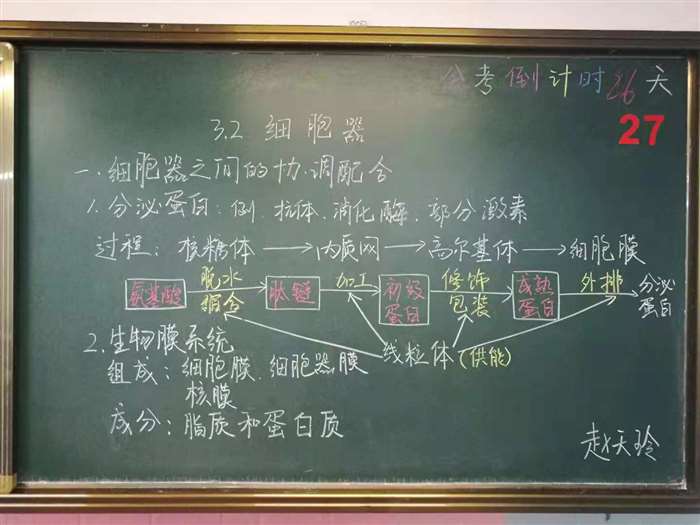 公考倒计时26天
27
3.2 细胞器
一.细胞器之间的协调配合
1.分泌蛋白:例.抗体.消化酶.部分激素
过程:核糖体→内质网→高尔基体→细胞膜
氨基酸 脱水缩合→ 肽链 加工→ 初级蛋白 修饰包装→ 成熟蛋白 外排→ 分泌蛋白
线粒体(供能)
2.生物膜系统
组成:细胞膜.细胞器膜
核膜
成分:脂质和蛋白质
赵天玲